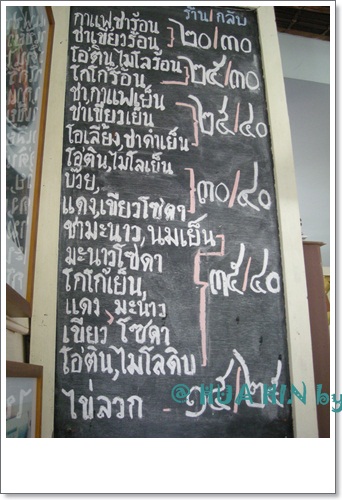 ร้าน/กลับ
กาแฟ,ชาร้อน
ชาเขียวร้อน
๒๐/๓๐
โอ่ติน,ไมโลร้อน
โกโก้ร้อน
๒๕/๓๐
ชา,กาแฟเย็น
ชาเขียวเย็น
โอเลี้ยง,ชาดำเย็น
๒๕/๔๐
โอ่ติน,ไมโลเย็น
บ๊วย,
แดง,เขียวโซดา
๓๐/๔๐
ชามะนาว,นมเย็น
มะนาวโซดา
โกโก้เย็น
แดง มะนาว
เขียว โซดา
โอ่ติน,ไมโลดิบ
๓๕/๔๐
ไข่ลวก
๑๕/๒๕
@ HUA HIN by